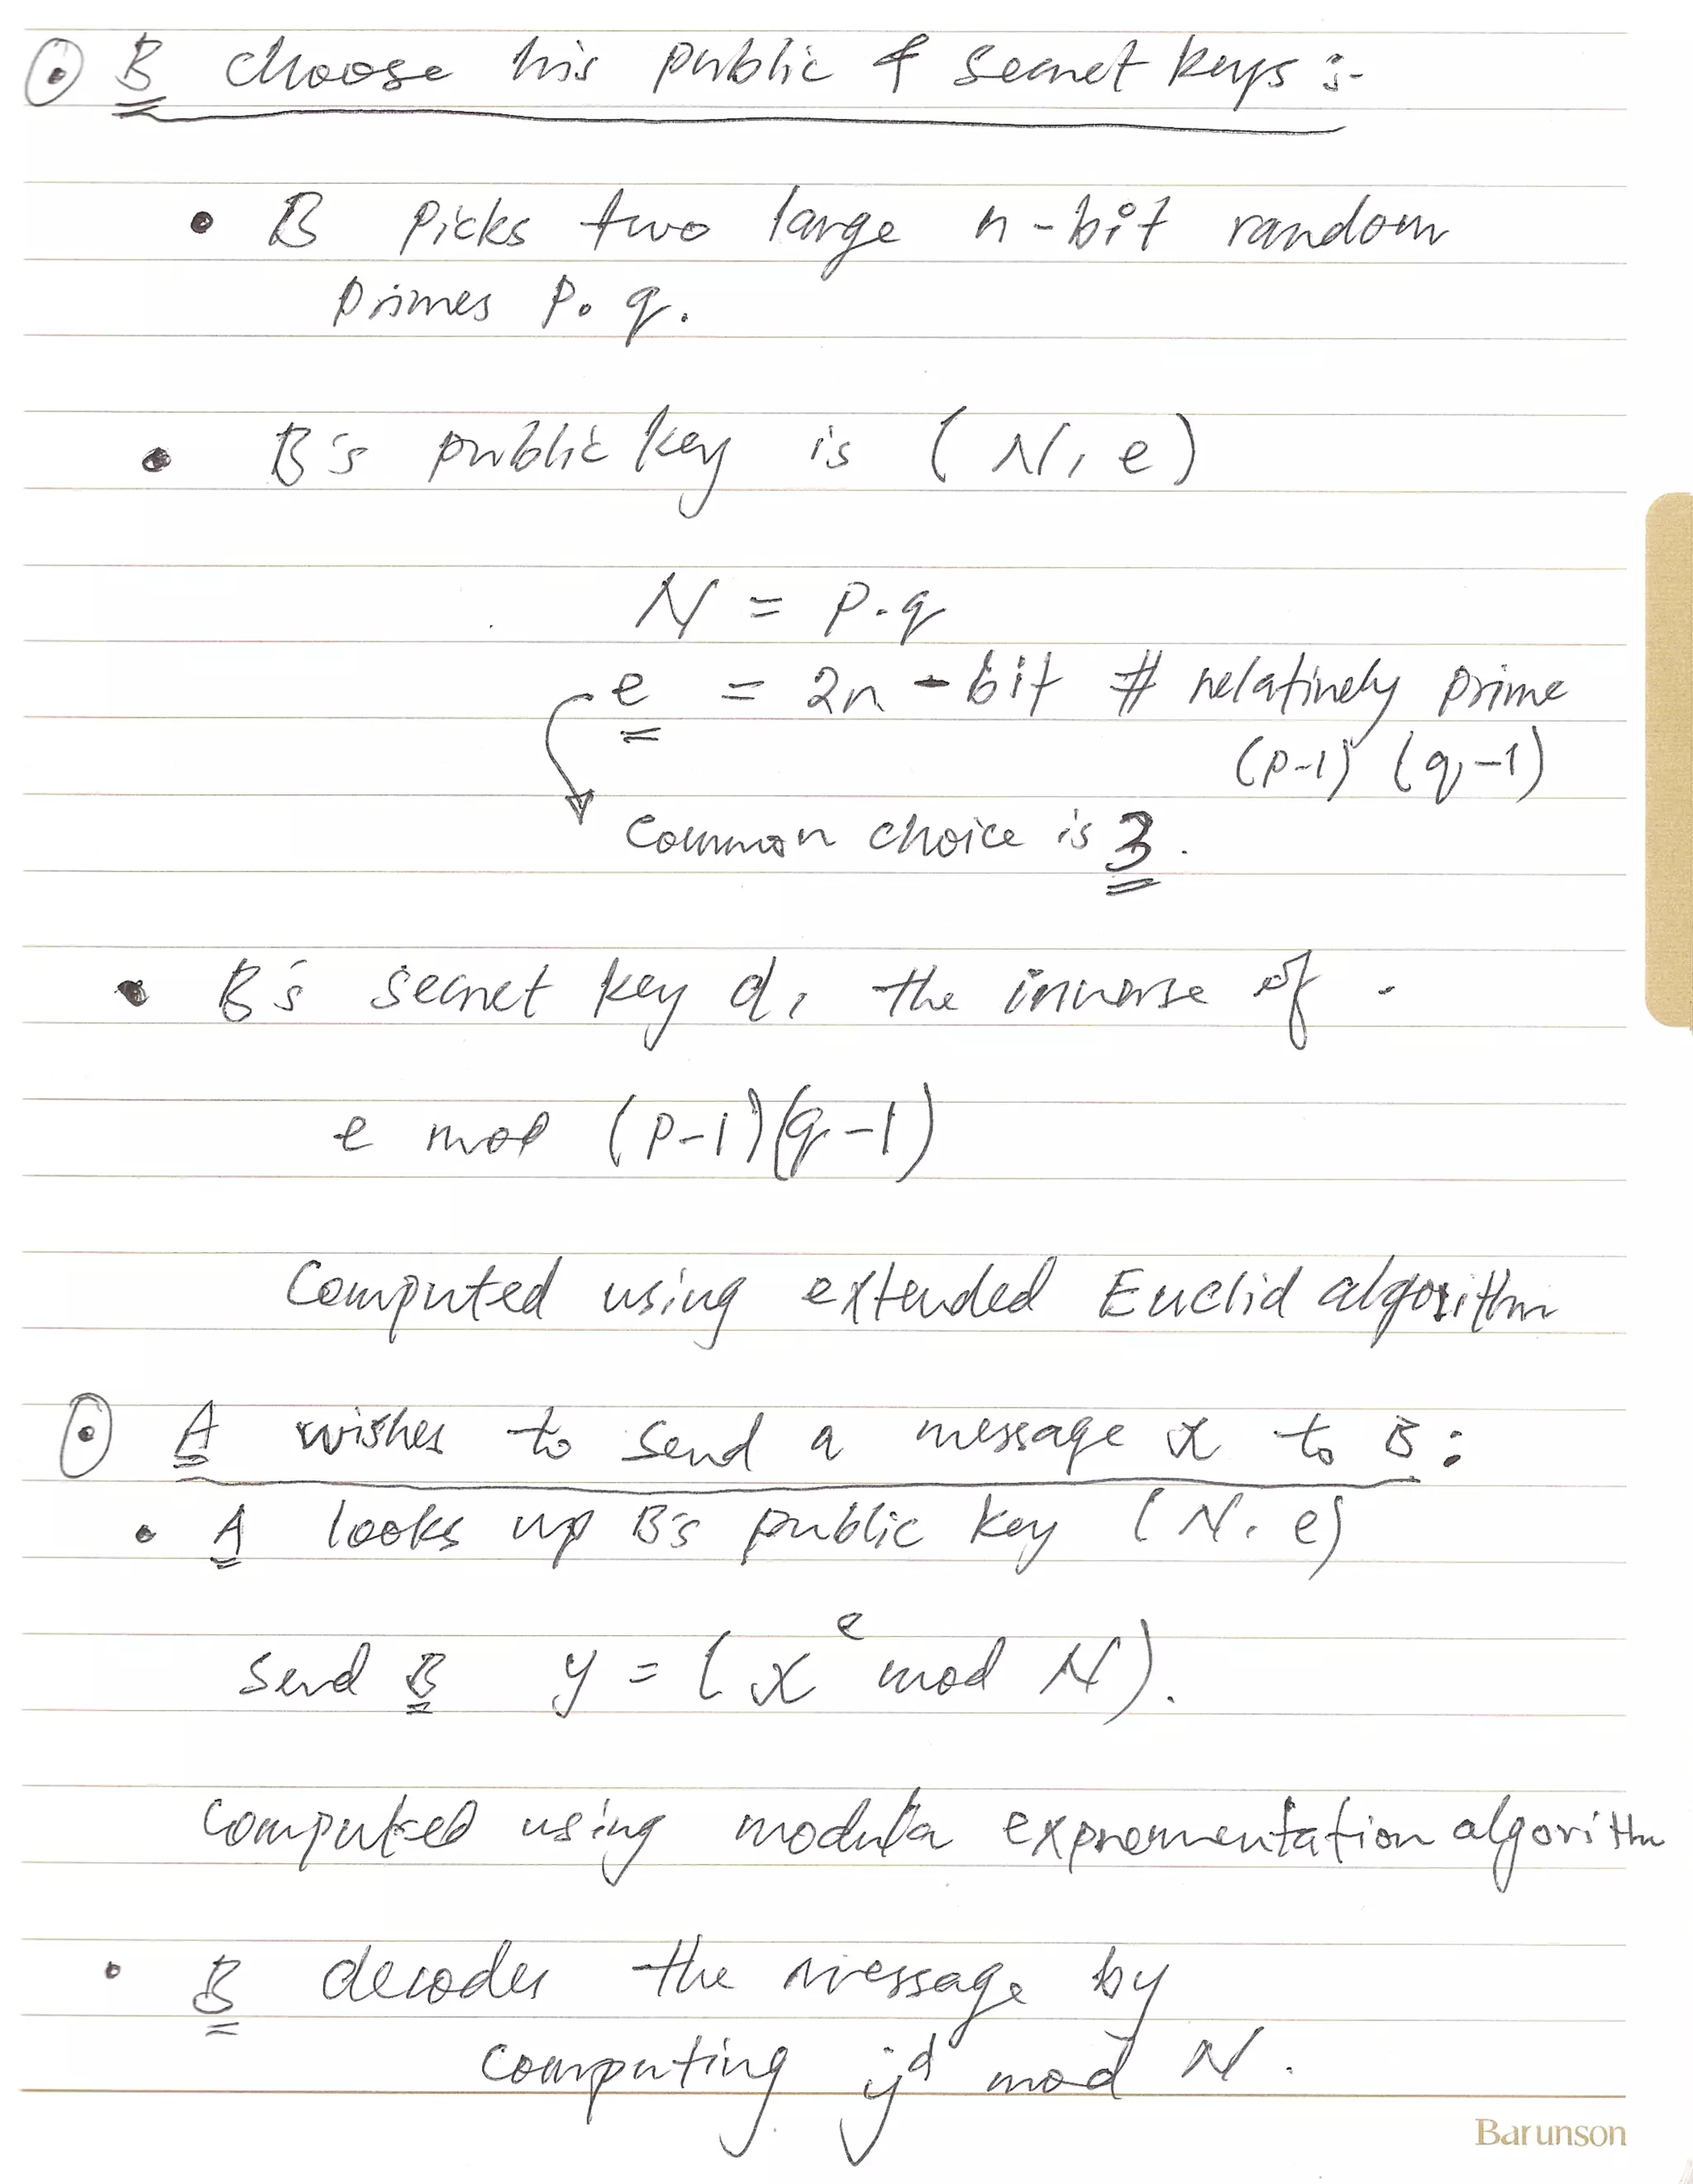 ⊙ B choose his public & secret keys :-
• B Picks two large n-bit random
primes p. q.
• B's public key is (N, e)
N = p.q
e = 2n-bit # relatively prime
(p-1) (q-1)
Common choice is 3.
• B's secret key d, the inverse of -
e mod (p-1)(q-1)
Computed using extended Euclid algorithm
⊙ A wishes to send a message x to B:
• A looks up B's public key (N, e)
send B y = (x^e mod N).
Computed using modula exponentation algorithm
• B decodes the message by
computing y^d mod N.
Barunson